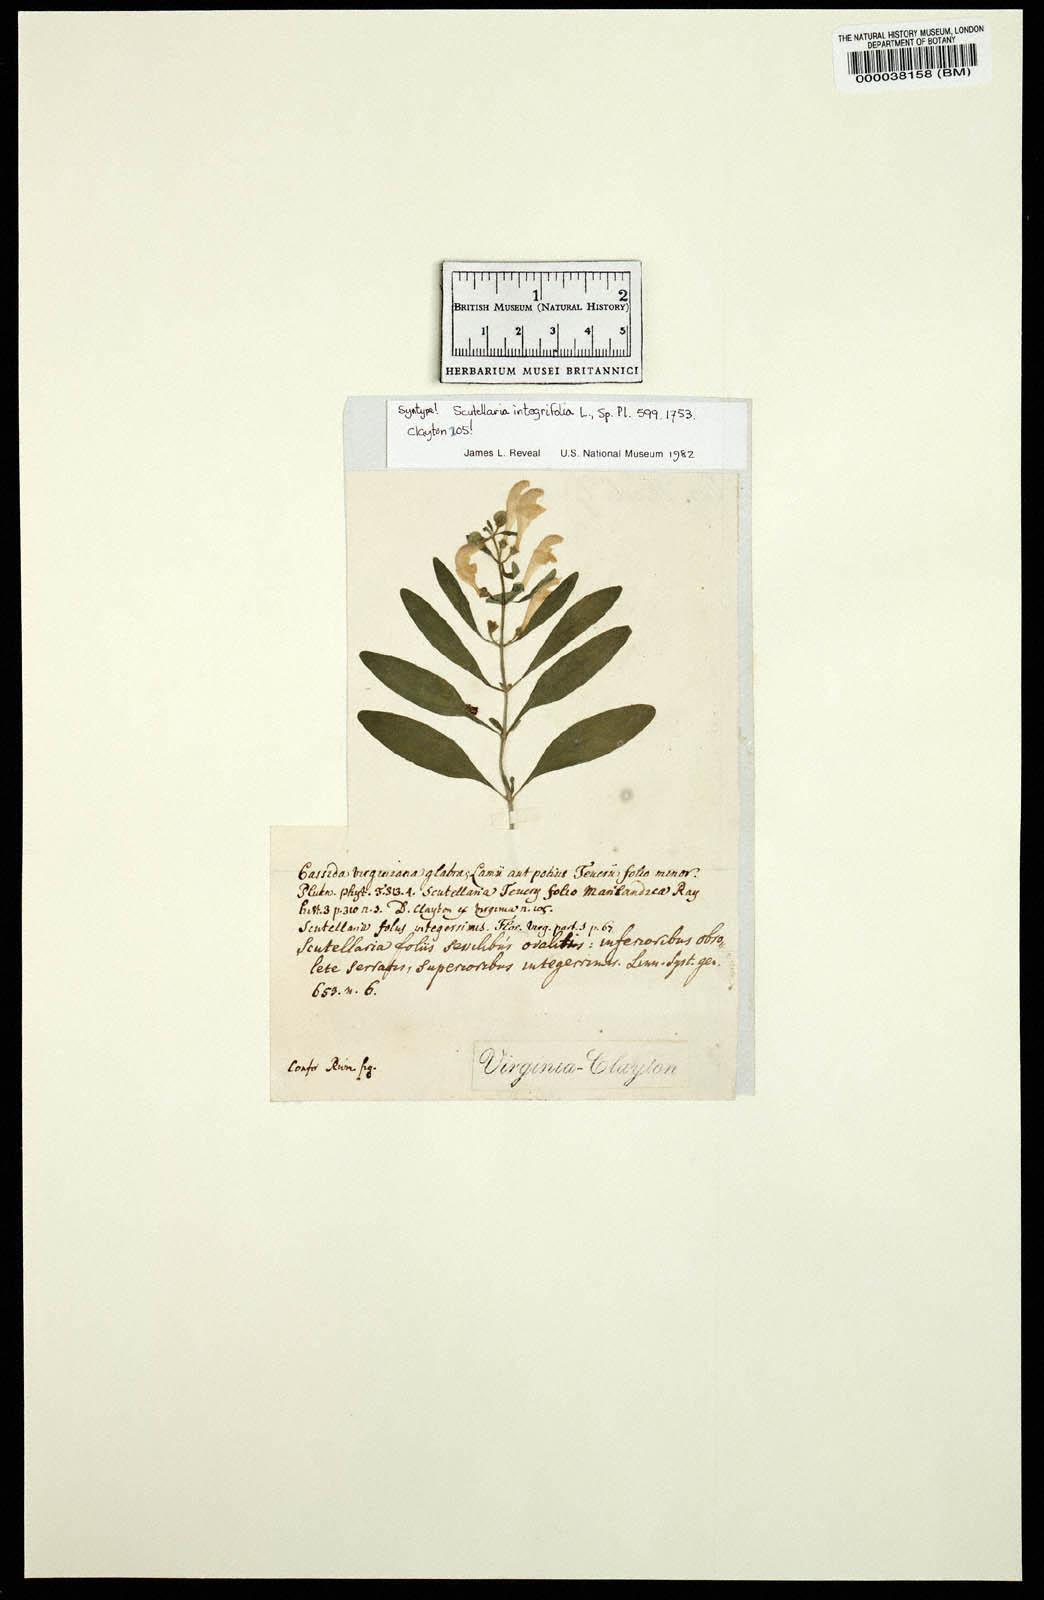 THE NATURAL HISTORY MUSEUM, LONDON
DEPARTMENT OF BOTANY
000038158 (BM)
1 2
BRITISH MUSEUM (NATURAL HISTORY)
1 2 3 4 5
HERBARIUM MUSEI BRITANNICI
Syntype! Scutellaria integrifolia L., Sp. Pl. 599. 1753.
Clayton 105!
James L. Reveal U.S. National Museum 1982
Cassida Virginiana glabra, Lamii aut potius Teucrii folio minor.
Plukn. phyt. T. 313. 4. Scutellaria Teucry folio Marilandica Ray
hist. 3 p. 310 n. 3. D. Clayton ex Virginia n. 105.
Scutellaria foliis integerrimis. Flor. Virg. part. 1 p. 67.
Scutellaria foliis sessilibus ovalibus: inferioribus obso-
lete serratis, superioribus integerrimis. Linn. Syst. gen.
653. n. 6.
Confer Rivin fig.
Virginia-Clayton